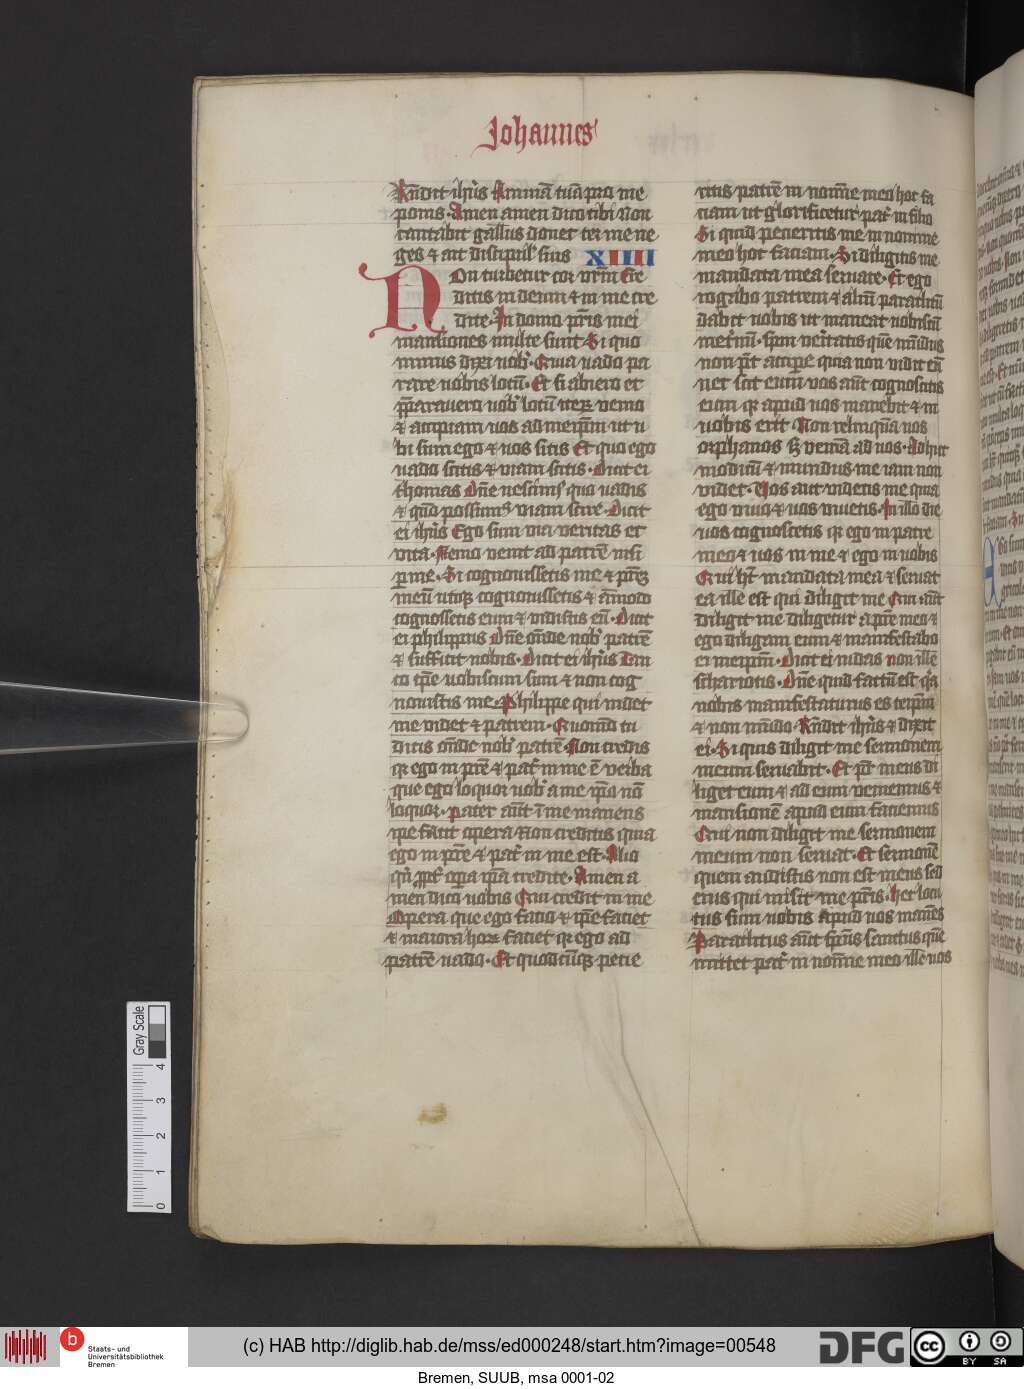 Johannes
Rn̄dit ih̄us Animā tuā pro me
ponis. Amen amen dico tibi Non
cantabit gallus donec ter me ne
ges & ait discipul' suis XIIII
Non turbetur cor vr̄m Cre
ditis in deum & in me cre
dite. In domo pr̄is mei
mansiones multe sunt Si quo
minus dixi uob'. Quia uado pa
rare uobis locū. Et si abiero et
p̄parauero uob' locū iterū uenio
& accipiam uos ad meipm̄ ut u
bi sum ego & uos sitis Et quo ego
uado scitis & uiam scitis. Dicit ei
thomas Dn̄e nescim' quo uadis
& quō possum' viam scire. Dicit
ei ih̄us Ego sum via veritas et
vita. Nemo venit ad patrē nisi
per me. Si cognouissetis me & pr̄eʒ
meū utiqʒ cognouissetis & āmodo
cognoscetis eum & vidistis eū. Dicit
ei philippus Dn̄e on̄de nob' patrē
& sufficit nobis. Dicit ei ih̄us Tan
to tp̄e uobiscum sum & non cog
nouistis me. Philippe qui uidet
me videt & patrem. Quomō tu
dicis on̄de nob' patrē. Non credis
qr ego in pr̄e & pat' in me ē verba
que ego loquor uob' a me ip̄o nō
loquor. pater aūt ī me manens
ipe facit opera Non creditis quia
ego in pr̄e & pat' in me est. Alio
qn̄ ꝓpt' oꝑa ip̄a credite. Amen a
men dico uobis Qui credit in me
Opera que ego facio & ip̄e faciet
& maiora horꝝ faciet qr ego ad
patrē uado. Et quodcūqʒ petie
ritis patrē in nomīe meo hoc fa
ciam ut glorificetur pat' in filio
Si quid petieritis me in nomine
meo hoc faciam. Si diligitis me
mandata mea seruate. Et ego
rogabo patrem & aliū paraclitū
dabit uobis ut maneat uobiscū
met'nū. spm̄ veritatis quē mūdus
non pt̄ accipere quia non vidit eū
nec scit eum vos aūt cognoscitis
eum qr apud uos manebit & in
uobis erit Non relinquā uos
orphanos sꝫ veniā ad uos. Adhuc
modicū & mundus me iam non
videt. Uos aut videtis me quia
ego viuo & uos viuetis. In illo die
uos cognoscetis qr ego in patre
meo & uos in me & ego in uobis
Qui ht̄ mandata mea & seruat
ea ille est qui diligit me Qui aūt
diligit me diligetur a pr̄e meo &
ego diligam eum & manifestabo
ei meipm̄. Dicit ei iudas non ille
schariotis. Dn̄e quid factū est qr̄
nobis manifestaturus es teipm̄
& non mūdo. Rn̄dit ih̄us & dixit
ei. Si quis diligit me sermonem
meum seruabit. Et pat' meus di
liget eum & ad eum veniemus &
mansionē apud eum faciemus
Qui non diligit me sermonem
meum non seruat. Et sermonē
quem audistis non est meus sed
eius qui misit me pr̄is. Hec locu
tus sum uobis Apud uos manēs
Paraclitus aūt spūs sanctus quē
mittet pat' in nomīe meo ille uos
Gray Scale
0 1 2 3 4
Staats- und
Universitätsbibliothek
Bremen
(c) HAB http://diglib.hab.de/mss/ed000248/start.htm?image=00548
DFG
cc BY SA
Bremen, SUUB, msa 0001-02